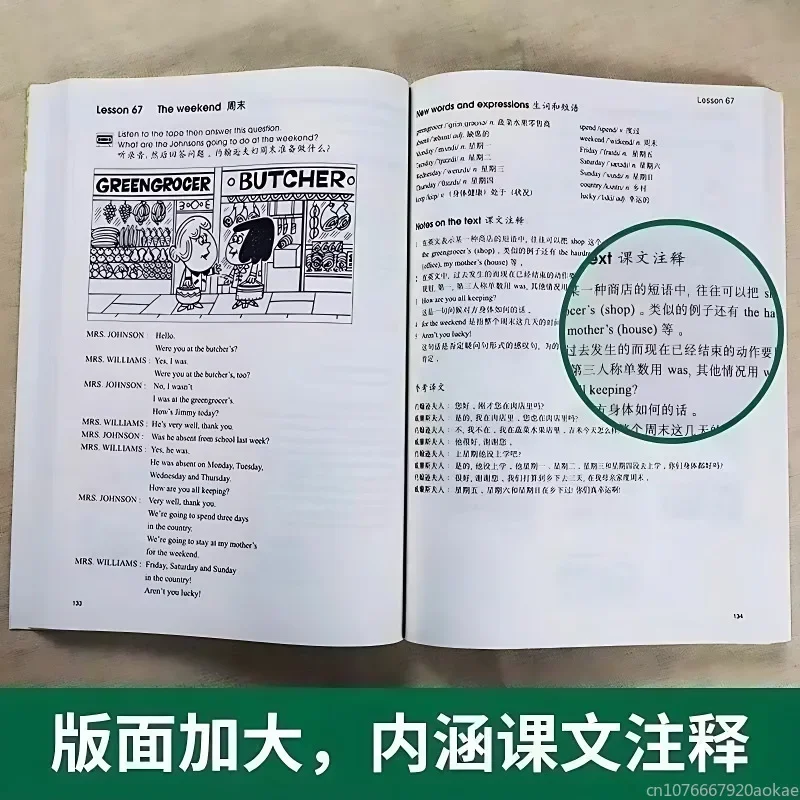 Lesson 67 The weekend 周末
Listen to the tape then answer this question.
What are the Johnsons going to do at the weekend?
听录音，然后回答问题。约翰逊夫妇周末准备做什么？
GREENGROCER
BUTCHER
MRS. JOHNSON : Hello.
Were you at the butcher's?
MRS. WILLIAMS : Yes, I was.
Were you at the butcher's, too?
MRS. JOHNSON : No, I wasn't
I was at the greengrocer's.
How's Jimmy today?
MRS. WILLIAMS : He's very well, thank you.
MRS. JOHNSON : Was he absent from school last week?
MRS. WILLIAMS : Yes, he was.
He was absent on Monday, Tuesday,
Wednesday and Thursday.
How are you all keeping?
MRS. JOHNSON : Very well, thank you.
We're going to spend three days
in the country.
We're going to stay at my mother's
for the weekend.
MRS. WILLIAMS : Friday, Saturday and Sunday
in the country!
Aren't you lucky!
133
Lesson 67
New words and expressions 生词和短语
greengrocer n. 蔬菜水果零售商
adj. 缺席的
Monday n. 星期一
Tuesday n. 星期二
Wednesday n. 星期三
Thursday n. 星期四
keep v. (身体健康) 处于 (状况)
spend v. 度过
weekend n. 周末
Friday n. 星期五
Saturday n. 星期六
Sunday n. 星期日
country n. 乡村
lucky adj. 幸运的
Notes on the text 课文注释
1 在英文表示某一种商店的短语中, 往往可以把 shop 这个
the greengrocer's (shop) 。类似的例子还有 the
(office), my mother's (house) 等 。
2 在英文中, 过去发生的而现在已经结束的动作要
第一, 第三人称单数用 was, 其他情况用
3 How are you all keeping?
这是一句问候对方身体如何的话 。
4 for the weekend 是指整个周末这几天的时间
5 Aren't you lucky!
这句话是否定疑问句形式的感叹句,
肯定 。
ext 课文注释
某一种商店的短语中, 往往可以把
ocer's (shop) 。类似的例子还有 the ha
mother's (house) 等 。
过去发生的而现在已经结束的动作要
第三人称单数用 was, 其他情况用
ll keeping?
方身体如何的话 。
个周末这几天的
参考译文
约翰逊夫人: 您好。刚才您在肉店里吗?
威廉斯夫人: 是的, 我在肉店里。您也在肉店里吗?
约翰逊夫人: 不, 我不在。我在蔬菜水果店里。吉米今天怎么样
威廉斯夫人: 他很好, 谢谢您 。
约翰逊夫人: 上星期他没上学吧?
威廉斯夫人: 是的, 他没上学 。他星期一、星期二、星期三和星期四没去上学 。你们身体都好吗?
约翰逊夫人: 很好, 谢谢您 。我们打算到乡下去三天, 在我母亲家度周末 。
威廉斯夫人: 星期五、星期六和星期日在乡下过! 你们真幸运啊!
134
版面加大，内涵课文注释
cn1076667920aokae